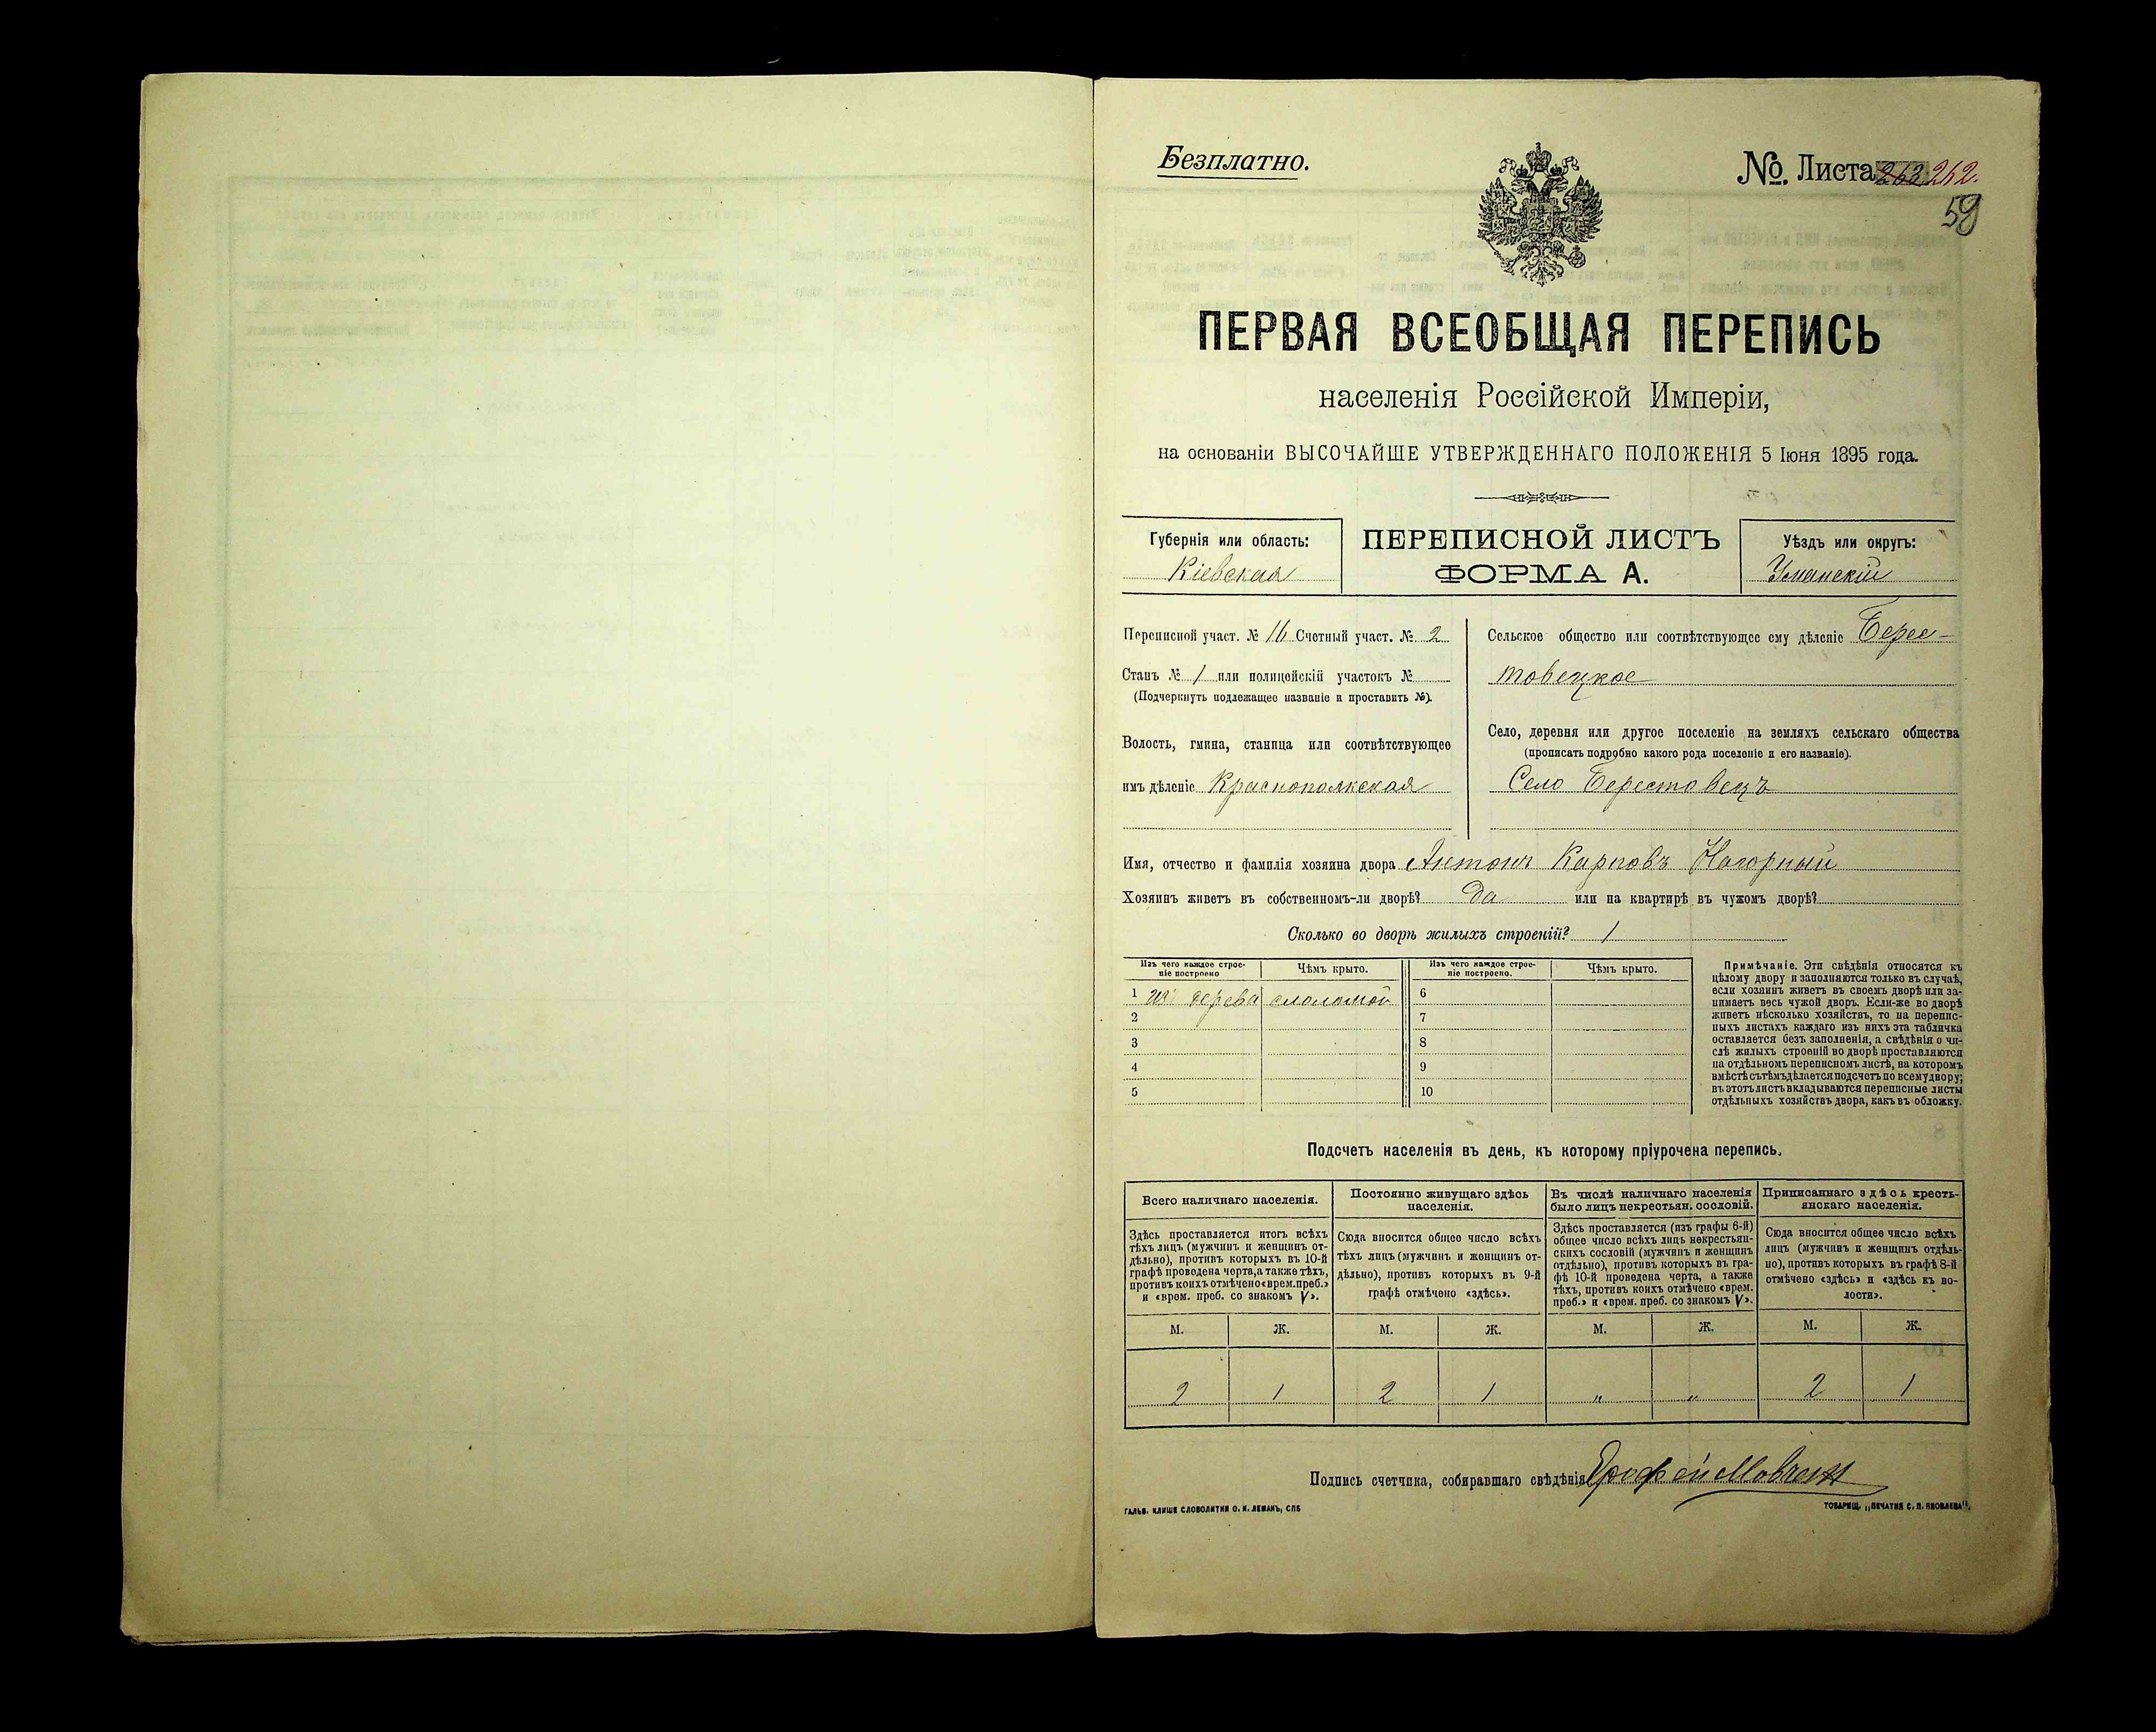 Безплатно.
№ Листа 263 262.
59
ПЕРВАЯ ВСЕОБЩАЯ ПЕРЕПИСЬ
населенія Россійской Имперіи,
на основаніи ВЫСОЧАЙШЕ УТВЕРЖДЕННАГО ПОЛОЖЕНІЯ 5 Іюня 1895 года.
Губернія или область:
Кіевская
ПЕРЕПИСНОЙ ЛИСТЪ
ФОРМА А.
Уѣздъ или округъ:
Уманскій
Переписной участ. № 16 Счетный участ. № 2
Станъ № 1 или полицейскій участокъ №
(Подчеркнуть подлежащее названіе и проставить №).
Волость, гмина, станица или соотвѣтствующее
имъ дѣленіе Краснополкская
Сельское общество или соотвѣтствующее ему дѣленіе Берес-
товецкое
Село, деревня или другое поселеніе на земляхъ сельскаго общества
(прописать подробно какого рода поселеніе и его названіе).
Село Берестовецъ
Имя, отчество и фамилія хозяина двора Антонъ Карповъ Нагорный
Хозяинъ живетъ въ собственномъ-ли дворѣ? да или на квартирѣ въ чужомъ дворѣ?
Сколько во дворѣ жилыхъ строеній? 1
Изъ чего каждое строе-
ніе построено
Чѣмъ крыто.
Изъ чего каждое строе-
ніе построено.
Чѣмъ крыто.
1 изъ дерева соломой
2
3
4
5
6
7
8
9
10
Примѣчаніе. Эти свѣдѣнія относятся къ
цѣлому двору и заполняются только въ случаѣ,
если хозяинъ живетъ въ своемъ дворѣ или за-
нимаетъ весь чужой дворъ. Если-же во дворѣ
живетъ нѣсколько хозяйствъ, то на перепис-
ныхъ листахъ каждаго изъ нихъ эта табличка
оставляется безъ заполненія, а свѣдѣнія о чи-
слѣ жилыхъ строеній во дворѣ проставляются
на отдѣльномъ переписномъ листѣ, на которомъ
вмѣстѣ съ тѣмъ дѣлается подсчетъ по всему двору;
въ этотъ листъ вкладываются переписные листы
отдѣльныхъ хозяйствъ двора, какъ въ обложку.
Подсчетъ населенія въ день, къ которому пріурочена перепись.
Всего наличнаго населенія.
Здѣсь проставляется итогъ всѣхъ
тѣхъ лицъ (мужчинъ и женщинъ от-
дѣльно), противъ которыхъ въ 10-й
графѣ проведена черта, а также тѣхъ,
противъ коихъ отмѣчено «врем. преб.»
и «врем. преб. со знакомъ V».
Постоянно живущаго здѣсь
населенія.
Сюда вносится общее число всѣхъ
тѣхъ лицъ (мужчинъ и женщинъ от-
дѣльно), противъ которыхъ въ 9-й
графѣ отмѣчено «здѣсь».
Въ числѣ наличнаго населенія
было лицъ некрестьян. сословій.
Здѣсь проставляется (изъ графы 6-й)
общее число всѣхъ лицъ некрестьян-
скихъ сословій (мужчинъ и женщинъ
отдѣльно), противъ которыхъ въ гра-
фѣ 10-й проведена черта, а также
тѣхъ, противъ коихъ отмѣчено «врем.
преб.» и «врем. преб. со знакомъ V».
Приписаннаго здѣсь кресть-
янскаго населенія.
Сюда вносится общее число всѣхъ
лицъ (мужчинъ и женщинъ отдѣль-
но), противъ которыхъ въ графѣ 8-й
отмѣчено «здѣсь» и «здѣсь къ во-
лости».
М. Ж. М. Ж. М. Ж. М. Ж.
2 1 2 1 „ „ 2 1
Подпись счетчика, собиравшаго свѣдѣнія Ерофей Мовчан
ГАЛЬВ. КЛИШЕ СЛОВОЛИТНИ О. И. ЛЕМАНЪ, СПБ
ТОВАРИЩ. „ПЕЧАТНЯ С. П. ЯКОВЛЕВА“.